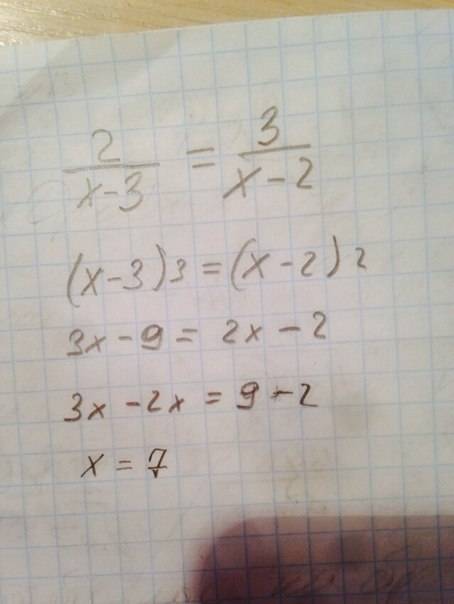 2/(x-3) = 3/(x-2)
(x-3)3=(x-2)2
3x-9=2x-2
3x-2x=9-2
x=7